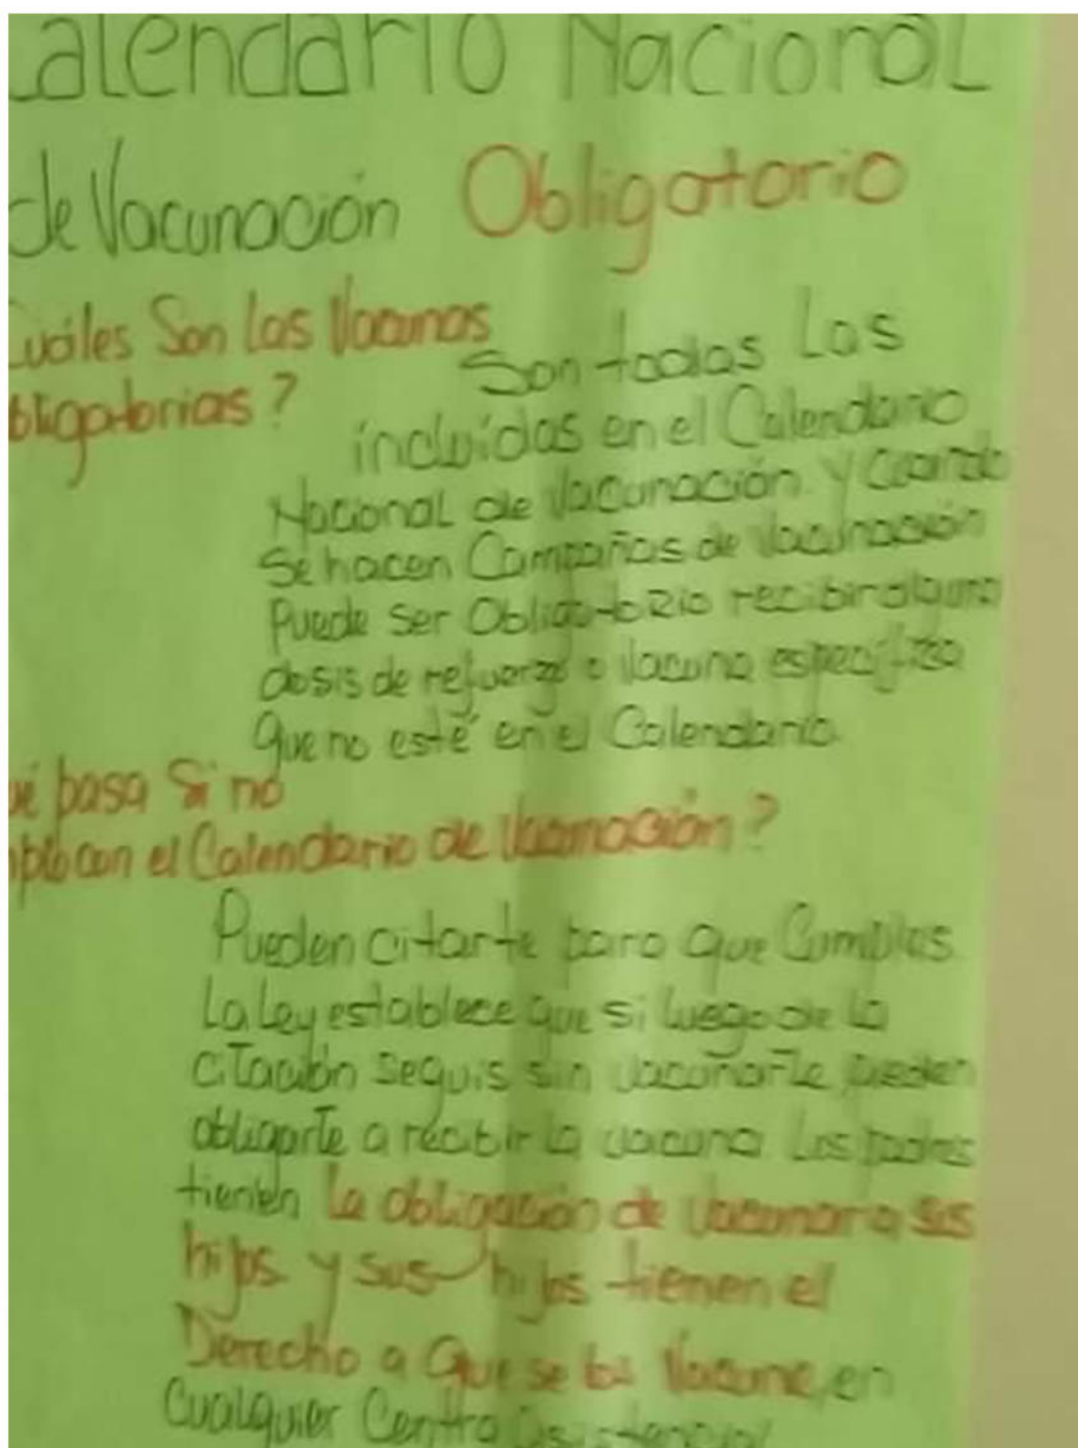 Calendario Nacional
de Vacunación Obligatorio
Cuáles Son Las Vacunas
bligatorias?
Son todas Las
incluídas en el Calendario
Nacional de Vacunación. Y cuando
Se hacen Campañas de Vacunación
Puede ser ObligatoRio recibir alguna
dosis de refuerzo o Vacuna específica
Que no esté en el Calendario.
ué pasa Si no
mplo con el Calendario de Vacunación?
Pueden citarte para que Cumplas.
La Ley establece que si luego de la
citación seguis sin vacunarte, pueden
obligarte a recibir la vacuna. Los padres
tienen la obligación de Vacunar a sus
hijos y sus hijos tienen el
Derecho a Que se los Vacune, en
Cualquier Centro Asistencial